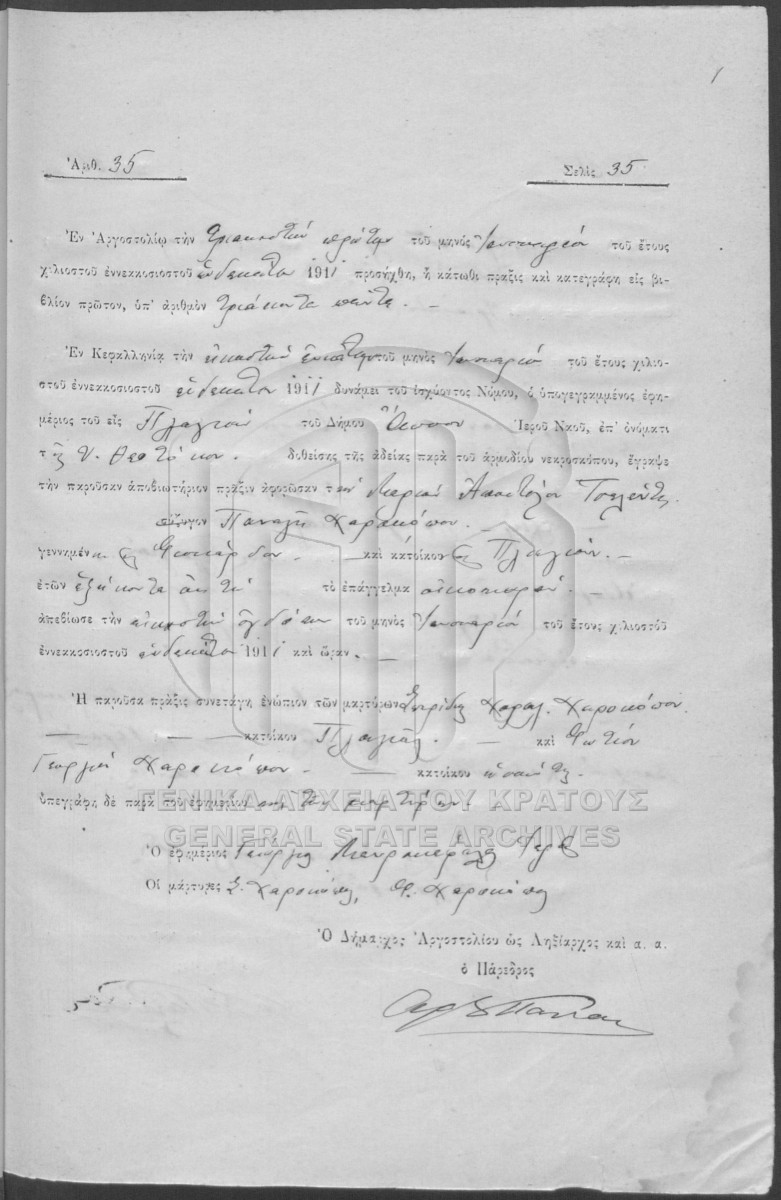 1
Ἀριθ. 35
Σελὶς 35
Ἐν Ἀργοστολίῳ τὴν τριακοστὴν πρώτην τοῦ μηνὸς Ἰανουαρίου τοῦ ἔτους
χιλιοστοῦ ἐννεκκοσιοστοῦ ἑνδεκάτου 1911 προσήχθη, ἡ κάτωθι πρᾶξις καὶ κατεγράφη εἰς βι-
βλίον πρῶτον, ὑπ' ἀριθμὸν τριάκοντα πέντε. —
Ἐν Κεφαλληνίᾳ τὴν εἰκοστὴν ἐννάτην τοῦ μηνὸς Ἰανουαρίου τοῦ ἔτους χιλιο-
στοῦ ἐννεκκοσιοστοῦ ἑνδεκάτου 1911 δυνάμει τοῦ ἰσχύοντος Νόμου, ὁ ὑπογεγραμμένος ἐφη-
μέριος τοῦ εἰς Πλαγιὰν τοῦ Δήμου Ἱεροῦ Ναοῦ, ἐπ' ὀνόματι
τῆς Υ. Θεοτόκου. δοθείσης τῆς ἀδείας παρὰ τοῦ ἁρμοδίου νεκροσκόπου, ἔγραψε
τὴν παροῦσαν ἀποβιωτήριον πρᾶξιν ἀφορῶσαν τὴν Μαρίαν Ἀποστόλου Τσελέντη.
σύζυγον Παναγῆ Χαροκόπου. —
γεννημένην εἰς Φισκάρδον — καὶ κάτοικον εἰς Πλαγιὰν. —
ἐτῶν ἑξήκοντα ὀκτὼ τὸ ἐπάγγελμα οἰκοκυρά.
ἀπεβίωσε τὴν εἰκοστὴν ὀγδόην τοῦ μηνὸς Ἰανουαρίου τοῦ ἔτους χιλιοστοῦ
ἐννεκκοσιοστοῦ ἑνδεκάτου 1911 καὶ ὥραν. —
Ἡ παροῦσα πρᾶξις συνετάγη ἐνώπιον τῶν μαρτύρων Σπυρίδ. Χαραλ. Χαροκόπου.
— — — κατοίκου Πλαγιᾶς. — καὶ Φωτίου
Γεωργίου Χαροκόπου. — κατοίκου ὡσαύτως.
ὑπεγράφη δὲ παρὰ τοῦ ἐφημερίου καὶ τῶν μαρτύρων.
ΓΕΝΙΚΑ ΑΡΧΕΙΑ ΤΟΥ ΚΡΑΤΟΥΣ
GENERAL STATE ARCHIVES
Ὁ ἐφημέριος Γεώργιος Μαυροκέφαλος
Οἱ μάρτυρες Σ. Χαροκόπος, Φ. Χαροκόπος
Ὁ Δήμαρχος Ἀργοστολίου ὡς Ληξίαρχος καὶ α. α.
ὁ Πάρεδρος